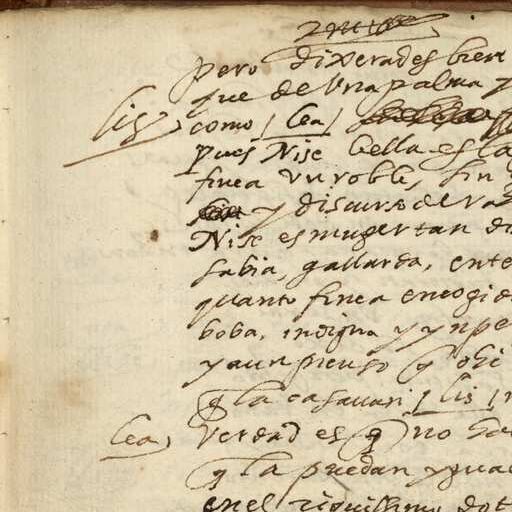 Pero dixerades bien
que de una palma y
lis. como / lea /
pues Nise bella es la
finea un roble, sin
y discurso de ra
Nise es muger tan di
sabia, gallarda, ente
quanto finea encogid
boba, indigna y ynpe
y aun pienso q ohi
q la casavan / lis /
lea, Verdad es q no
q la puedan ygua
en el riquissimo dot